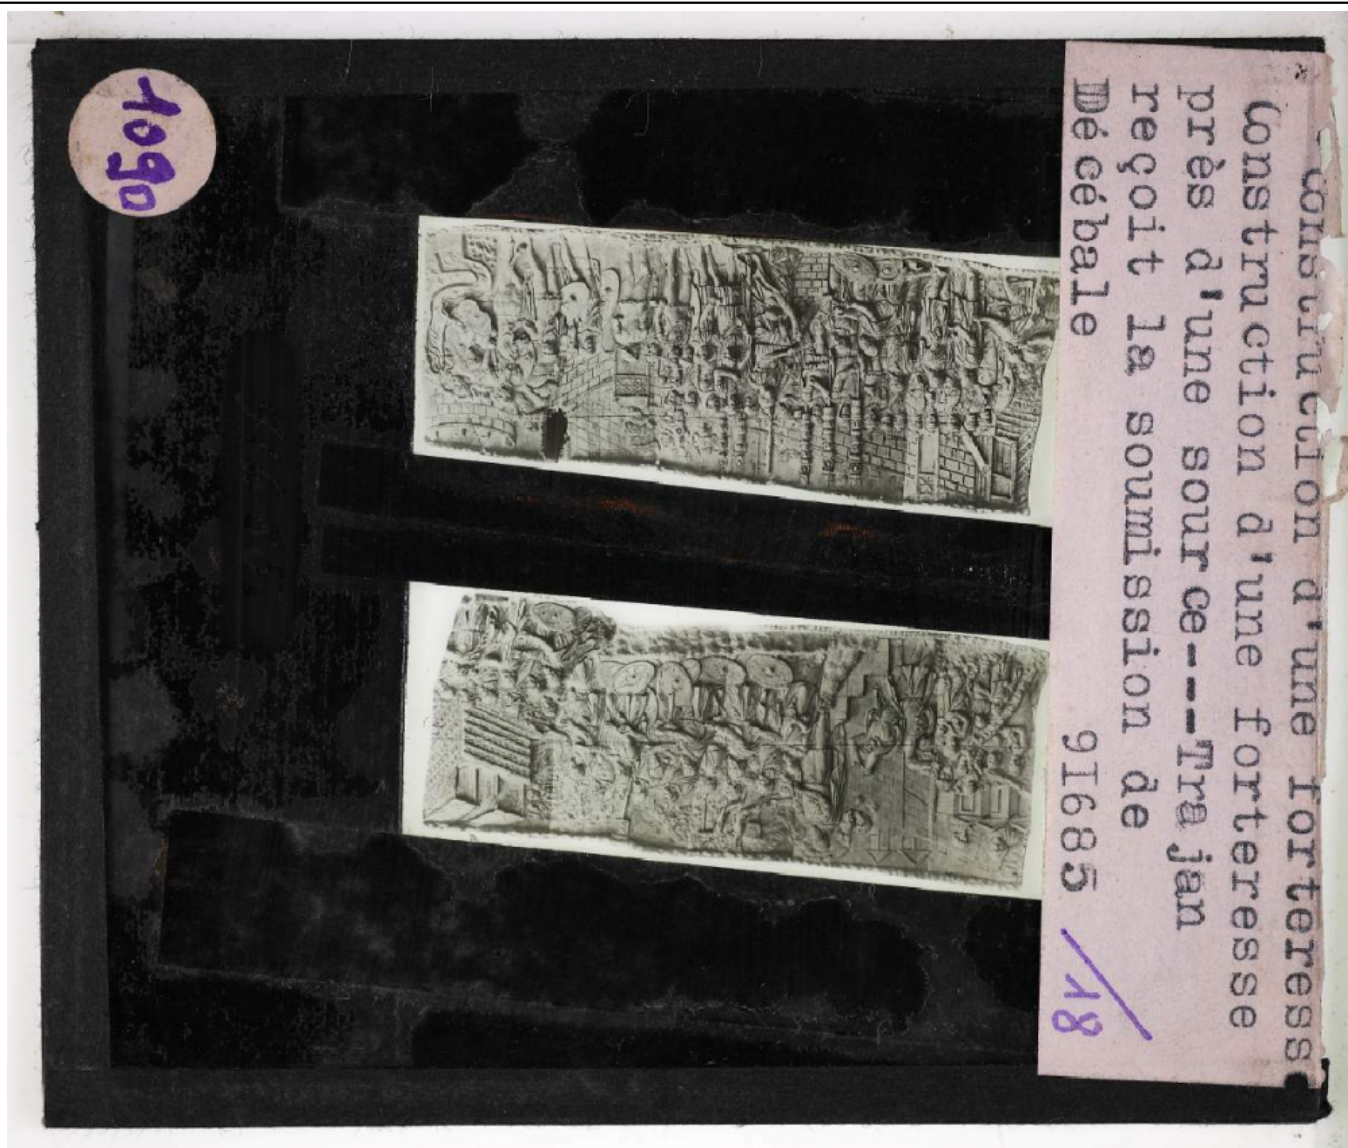 Construction d'une forteress
Construction d'une forteresse
près d'une source---Trajan
reçoit la soumission de
Décébale
91685 /18
1090